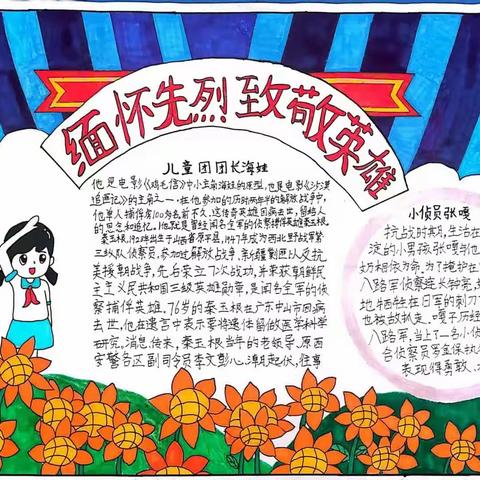 缅怀先烈致敬英雄
儿童团团长海娃
他是电影《鸡毛信》中小主角海娃的原型,也是电影《沙漠
追匪记》的主角之一.在他参加的历时两年半的解放战争中,
他单人捕俘敌100多名前不久,这传奇英雄因病去世,留给人
的思念和追忆.他就是曾经闻名全军的侦察捕俘英雄秦玉根.
秦玉根,1928出生于山西省原平县,1947年成为西北野战军第
三纵队侦察员,参加过解放战争,新疆剿匪以及抗
美援朝战争,先后荣立7次战功,并荣获朝鲜民
主主义人民共和国三级英雄勋章,是闻名全军的侦
察捕俘英雄.76岁的秦玉根在广东中山市因病
去世,他在遗言中表示要将遗体留做医学科学
研究.消息传来,秦玉根当年的老领导,原西
安警备区副司令员李文彭心潮起伏,往事
小侦员张嘎
抗战时期,生活在
淀的小男孩张嘎与他
奶相依为命.为了掩护在
八路军侦察连长钟亮,
地牺牲在日军的刺刀
也被敌抓走.嘎子历经
八路军,当上了一名小侦
合侦察员罗金保执
表现得勇敢、